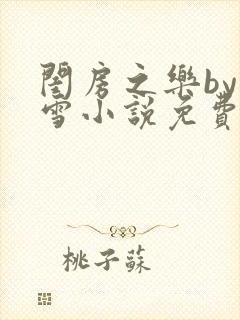 閨房之樂by
雪小說免費
桃子蘇